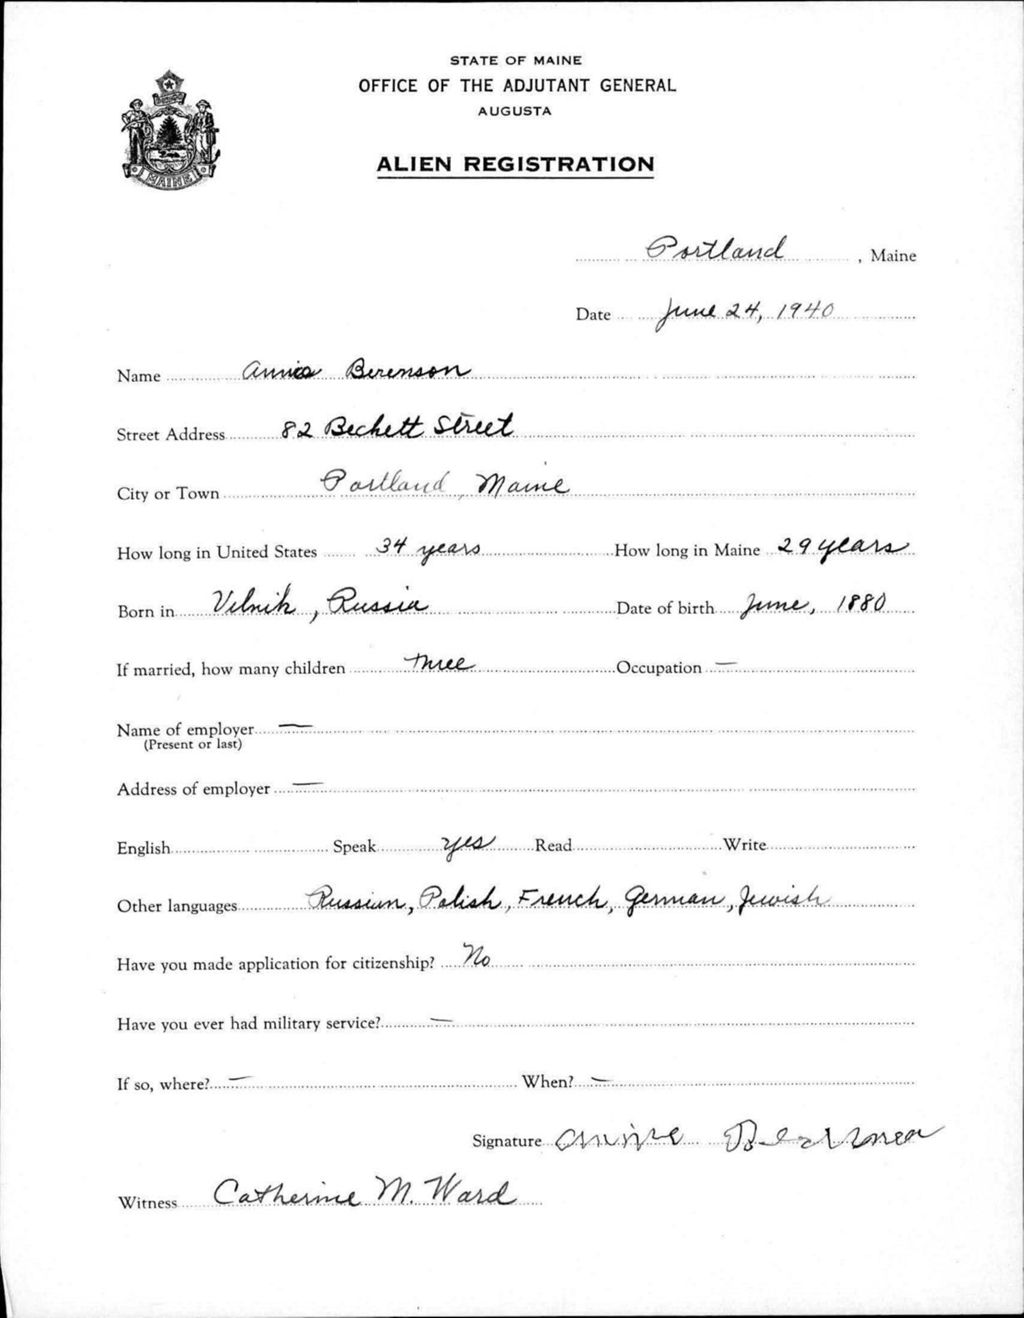 STATE OF MAINE
OFFICE OF THE ADJUTANT GENERAL
AUGUSTA
ALIEN REGISTRATION
MAINE
Portland, Maine
Date June 24, 1940
Name Annie Berenson
Street Address 82 Beckett Street
City or Town Portland, Maine
How long in United States 34 years How long in Maine 29 years
Born in Vilnik, Russia Date of birth June, 1880
If married, how many children Three Occupation —
Name of employer —
(Present or last)
Address of employer —
English Speak yes Read Write
Other languages Russian, Polish, French, German, Jewish
Have you made application for citizenship? No
Have you ever had military service? —
If so, where? — When? —
Signature Annie
Witness Catherine M. Ward